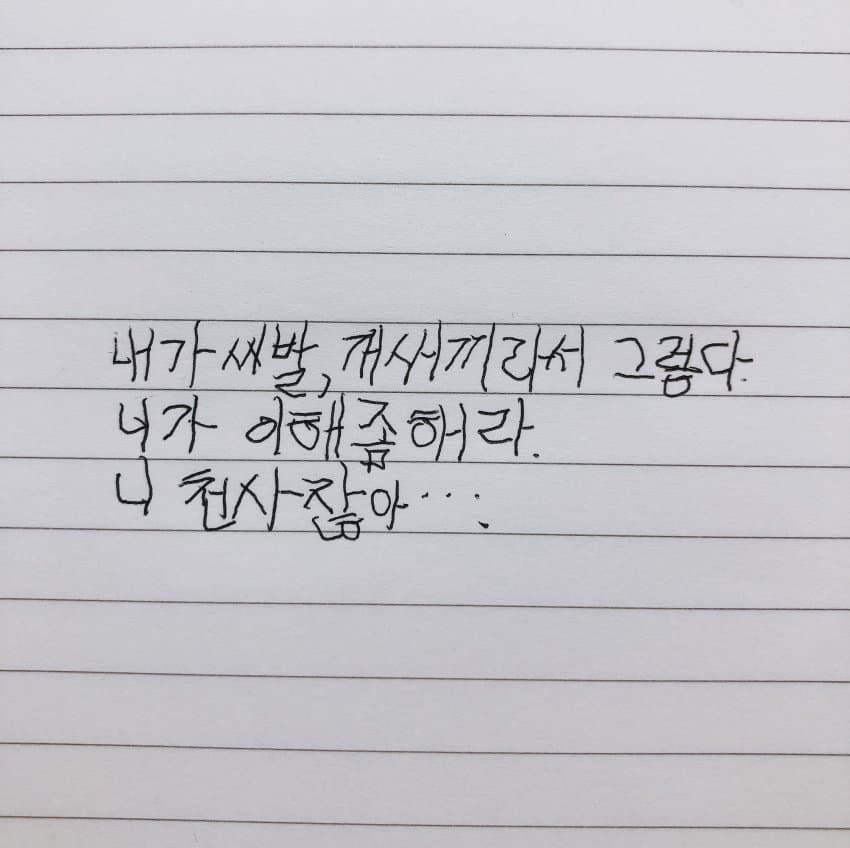 내가 씨발, 개새끼라서 그렇다.
니가 이해 좀 해라.
니 천사잖아….